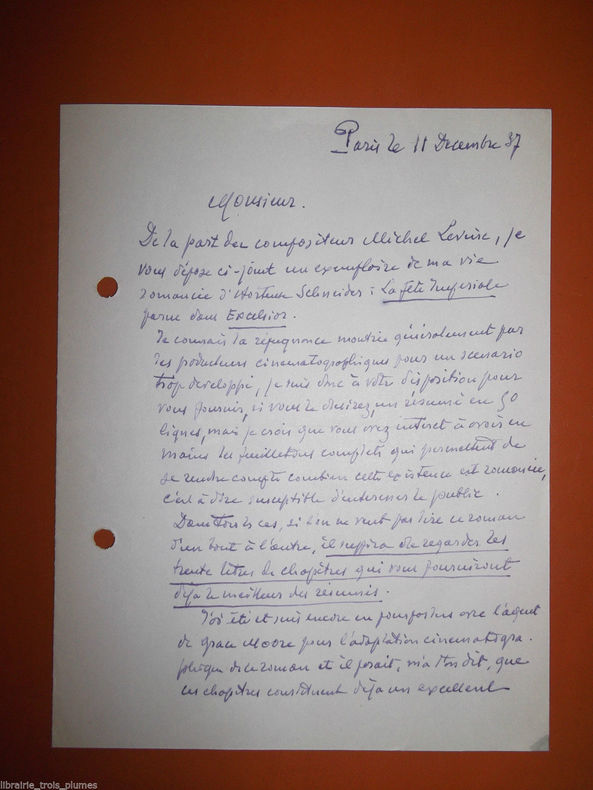 Paris le 11 Decembre 37
Monsieur.
De la part du compositeur Michel , je
vous dépose ci-joint un exemplaire de ma vie
romancée d'Hortense Schneider : La fête Imperiale
parue dans Excelsior.
Je connais la répugnance montrée généralement par
les producteurs cinematographiques pour un scenario
trop developpé, je suis donc à votre disposition pour
vous fournir, si vous le desirez, un résumé en 50
lignes, mais je crois que vous avez interet à avoir en
mains les feuilletons complets qui permettent de
se rendre compte combien cette existence est romancée,
c'est à dire susceptible d'interesser le public.
Dans tous les cas, si l'on ne veut pas lire ce roman
d'un bout à l'autre, il suffira de regarder les
trente titres de chapitres qui vous fourniront
déjà le meilleur des résumés.
J'ai été et suis encore en pourparlers avec l'agent
de Grace Moore pour l'adaptation cinematogra-
phique de ce roman et il parait, m'a t'on dit, que
ces chapitres constituent déjà un excellent
librairie_trois_plumes